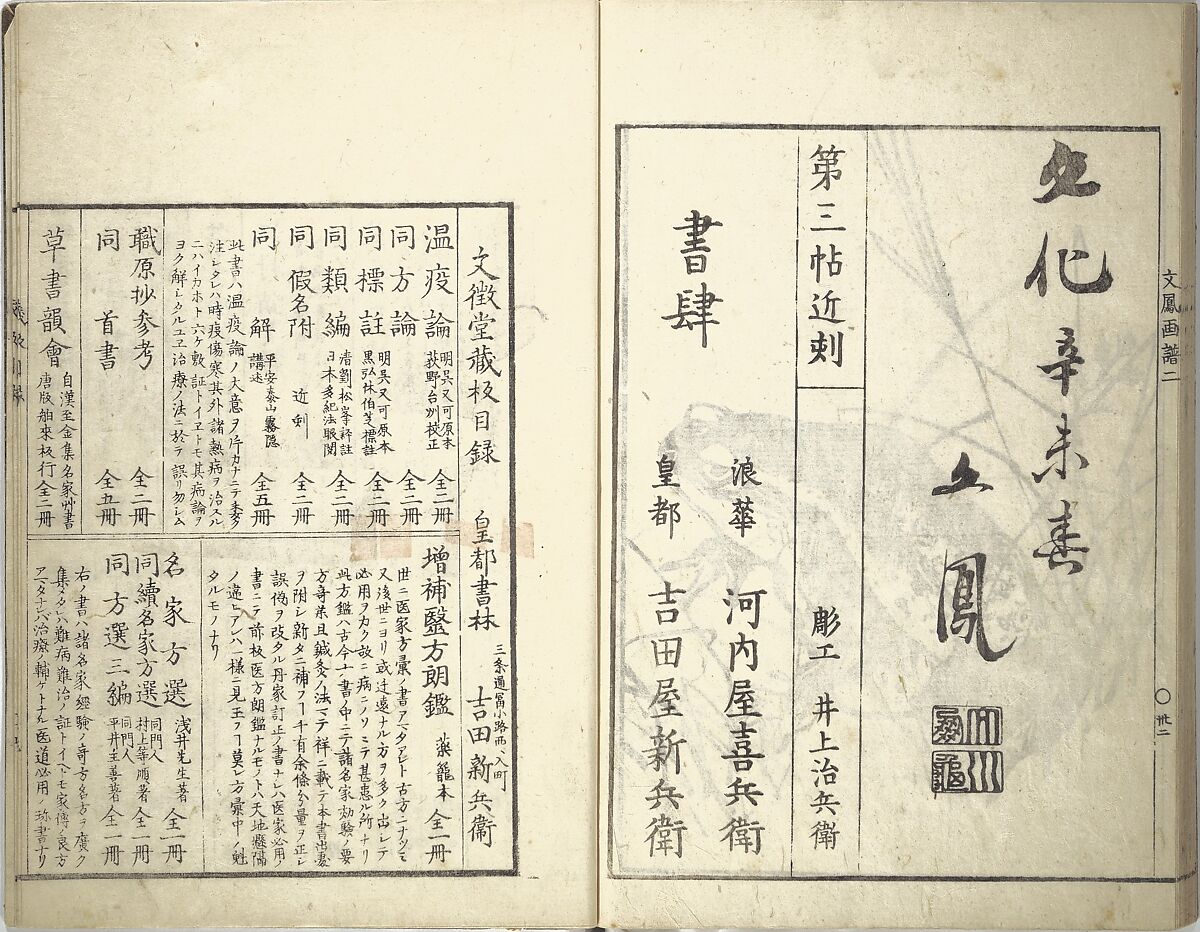 文鳳画譜二
〇卅二
文化辛未春
文鳳
第三帖近刻
彫工 井上治兵衛
書肆
浪華 河内屋喜兵衛
皇都 吉田屋新兵衛
文徴堂蔵板目録 皇都書林 三条通冨小路西ヘ入町 吉田新兵衛
温疫論 明呉又可原本 荻野台州校正 全二冊
同方論 明呉又可原本 全二冊
同標註 黒弘休伯芝標註 全二冊
同類編 清劉松峯評註 日本多紀法眼閲 全二冊
同假名附 近刻 全二冊
同解 平安泰山霧隠講述 全五冊
此書ハ温疫論ノ大意ヲ片カナニテ委ク
注シタレハ時疫傷寒其外諸熱病ヲ治スル
ニハイカホト六ケ敷証トイヱトモ其病論ヲ
ヨク解シタルユヱ治療ノ法ニ於テ誤リ勿シム
職原抄参考 全二冊
同首書 全五冊
草書韻會 自漢至金集名家艸書 唐版舶來板行 全二冊
増補醫方朗鑑 薬籠本 全一冊
世ニ医家方彙ノ書アマタアレト古方ニナツミ
又後世ニヨリ或ハ迂遠ナル方ヲ多ク出シテ
必用ヲカク故ニ病ニノソミテ甚患ル所ナリ
此方鑑ハ古今ノ書ノ中ニテ諸名家効験ノ要
方奇薬且鍼灸ノ法マテ祥ニ載テ本書出處
ヲ附シ新タニ補フ一千有余條分量ヲ正シ
誤偽ヲ改タル丹家訂正ノ書ナレハ医家必用ノ
書ニテ前板医方朗鑑ナルモノトハ天地懸隔
ノ違ヒアレハ一様ニ見玉フヿ莫レ方彙中ノ魁
タルモノナリ
名家方選 浅井先生著 全一冊
同續名家方選 同門人 村上等順著 全一冊
同方選三編 同門人 平井主善著 全一冊
右ノ書ハ諸名家経験ノ奇方名方ヲ廣ク
集メタレハ難病難治ノ証トイヘトモ家傳ノ良方
アマタナレバ治療ノ輔ケトナル医道必用ノ珍書ナリ